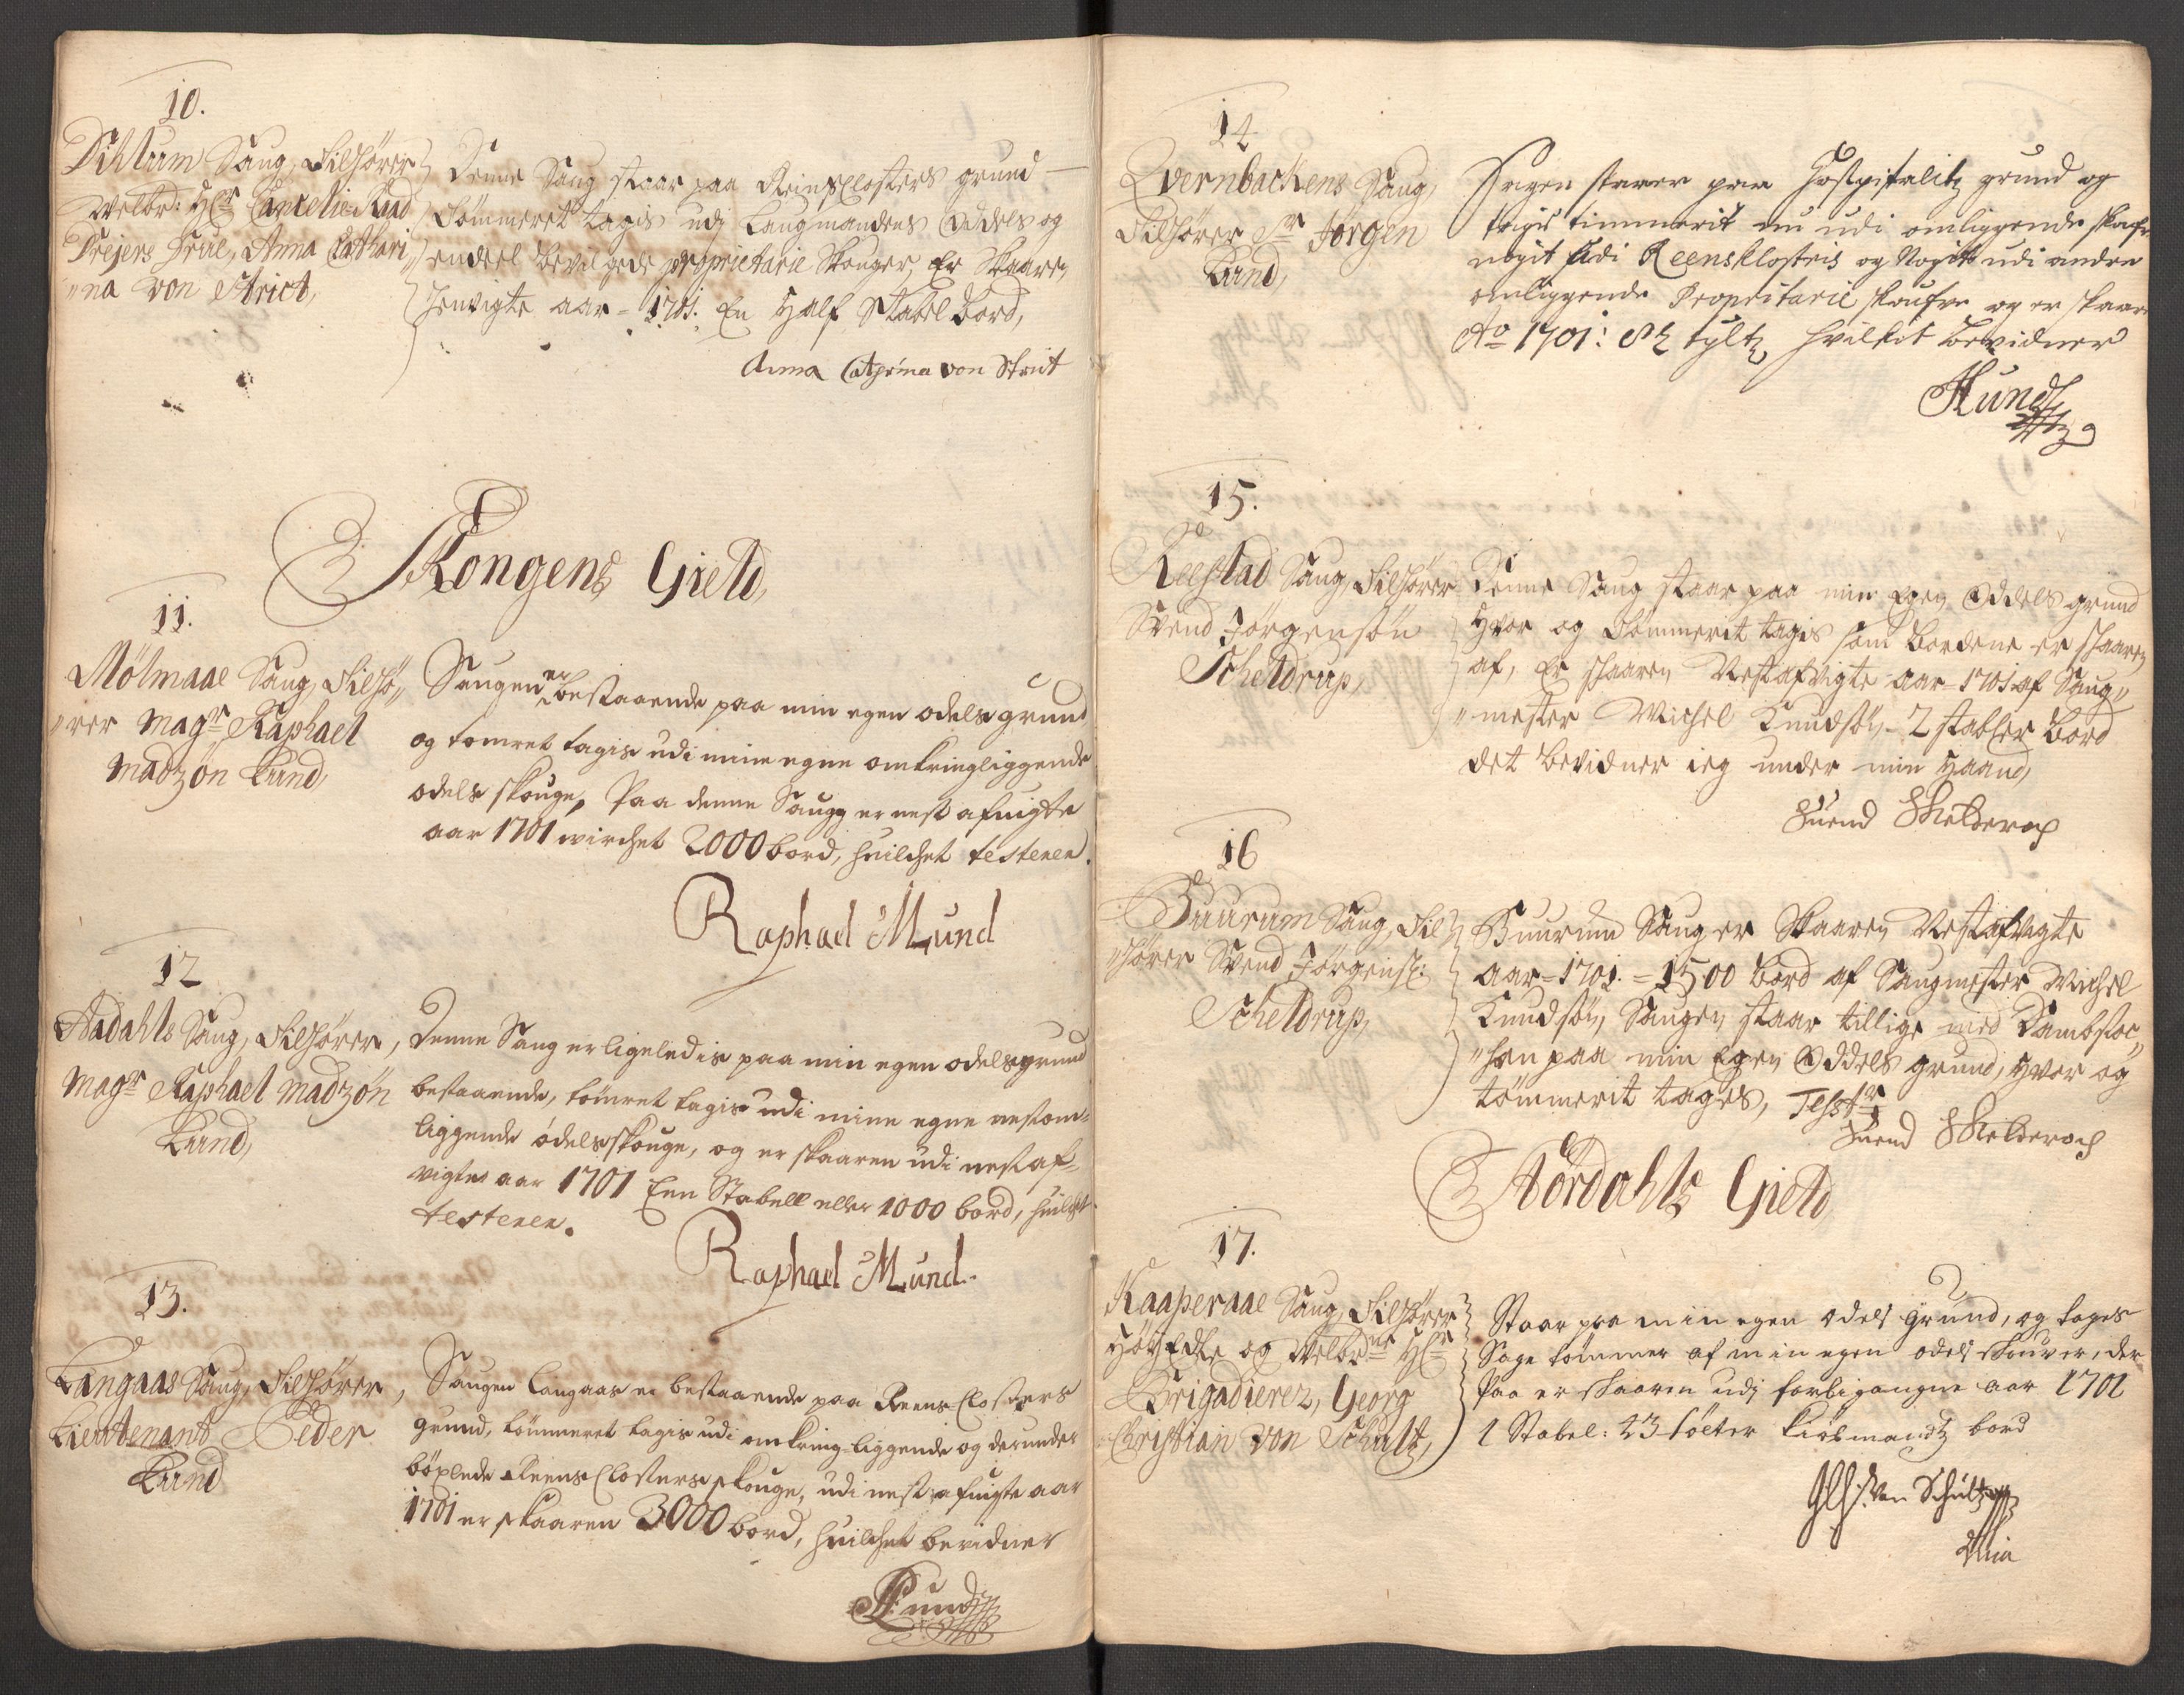 10.
Dihlum Saug, Tilhører
Welbr: Hr Cancelie-Raad
Drejers Frue, Anna Cathari,,
,,na von Strict,
Denne Saug staar paa ReinsClosters grund
Tømmeret tagis udj Laugmandens Oddels og
endeel bevilgede proprietarie Skouger, Er Skaaren
henvigte aar - 1701. En Half Stabel bord,
Anna Catrina von Strict
Stongens Gield,
11.
Mølmaae Saug, Tilhø,,
,,rer Magr Raphael
Madzøn Lund,
Saugen er bestaaende paa min egen odels grund
og tømret tagis udi mine egne omkringliggende
odels skouge, Paa denne Saug er nest afvigte
aar 1701 wirchet 2000 bord, huilchet testerer.
Raphael M. Lund
12
Aadahls Saug, Tilhører,
Magr Raphael Madzøn
Lund,
Denne Saug er ligeledis paa min egen odelsgrund
bestaaende, tømret tagis udi mine egne nestom-
liggende odelsskouge, og er skaaren udi nestaf-
vigte aar 1701 Een Stabell eller 1000 bord, huilchet
testerer.
Raphael M. Lund.
13.
Langaas Saug, Tilhører,
Lieutenant Peder
Lund
Saugen Langaas er bestaaende paa ReensClosters
grund, tømmeret tagis udi omkring liggende og derunder
bøxlede ReensClosters skouge, udi nest afvigte aar
1701 er skaaren 3000 bord, huilchet bevidner
PLund
14
Qvernbackens Saug,
Tilhører Sr Jørgen
Lund,
Sagen staaer paa Hospitalitz grund og
tagis timmerit nu udi omliggende skoufve
nogit udi Reensklosteris og Nogit udi andre
omliggende Propritarie skoufve og er skaaren
Ao 1701: 82 tylt, hvilket bevidner
Lund
15.
Reestad Saug, Tilhører
Svend Jørgensøn
Scheldrup,
Denne Saug staar paa min Egen Oddels grund
Hvor og Tømmerit tagis som bordene er skaaren
af, Er skaaren Nestafvigte aar - 1701 af Saug,,
,,mester Michel Knudsøn - 2 stabler bord
det bevidner ieg under min Haand,
Suend Skielderop
16
Buurum Saug, Til
,,hører Svend Jørgens:
Scheldrup,
Buurum Saug er Skaaren Nestafvigte
aar - 1701. = 1500 bord af Saugmester Michel
Knudsøn, Saugen staar tillige med Dambstoc,,
,,hen paa min Egen Oddels grund, Hvor og
tømmerit tages, Testr
Suend Skielderop
Størdahls Gield
17.
Kaaperaae Saug, Tilhører
HøyEdle og Welbrne Hr
Brigadierer, Georg
Christian von Schultz,
Staar paa min egen odels Grund, og tages
Sage tømmer af min egen odels skouver, der
Paa er skaaren udj forbigangne aar 1701
1 Stabel: 23 tølter Kiøbmandtz bord
GChr: von Schultz